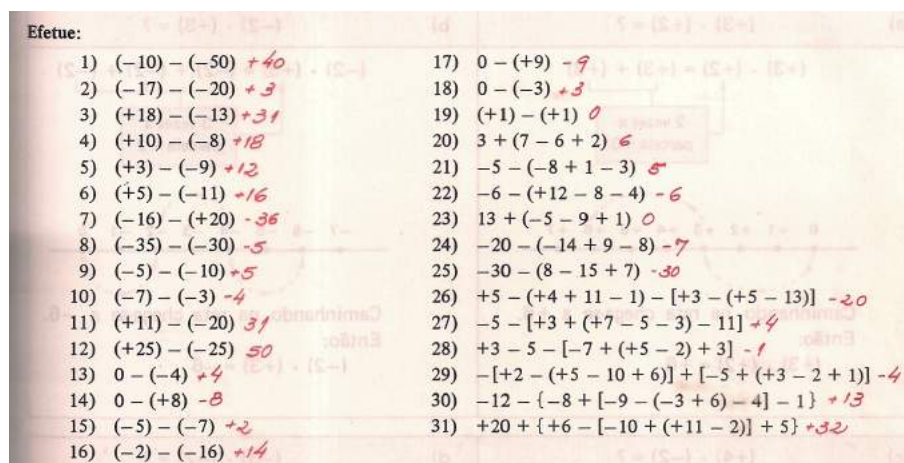 Efetue:
1) (−10) − (−50) +40
2) (−17) − (−20) +3
3) (+18) − (−13) +31
4) (+10) − (−8) +18
5) (+3) − (−9) +12
6) (+5) − (−11) +16
7) (−16) − (+20) -36
8) (−35) − (−30) -5
9) (−5) − (−10) +5
10) (−7) − (−3) -4
11) (+11) − (−20) 31
12) (+25) − (−25) 50
13) 0 − (−4) +4
14) 0 − (+8) -8
15) (−5) − (−7) +2
16) (−2) − (−16) +14
17) 0 − (+9) -9
18) 0 − (−3) +3
19) (+1) − (+1) 0
20) 3 + (7 − 6 + 2) 6
21) −5 − (−8 + 1 − 3) 5
22) −6 − (+12 − 8 − 4) -6
23) 13 + (−5 − 9 + 1) 0
24) −20 − (−14 + 9 − 8) -7
25) −30 − (8 − 15 + 7) -30
26) +5 − (+4 + 11 − 1) − [+3 − (+5 − 13)] -20
27) −5 − [+3 + (+7 − 5 − 3) − 11] +4
28) +3 − 5 − [−7 + (+5 − 2) + 3] -1
29) −[+2 − (+5 − 10 + 6)] + [−5 + (+3 − 2 + 1)] -4
30) −12 − {−8 + [−9 − (−3 + 6) − 4] − 1} +13
31) +20 + {+6 − [−10 + (+11 − 2)] + 5} +32